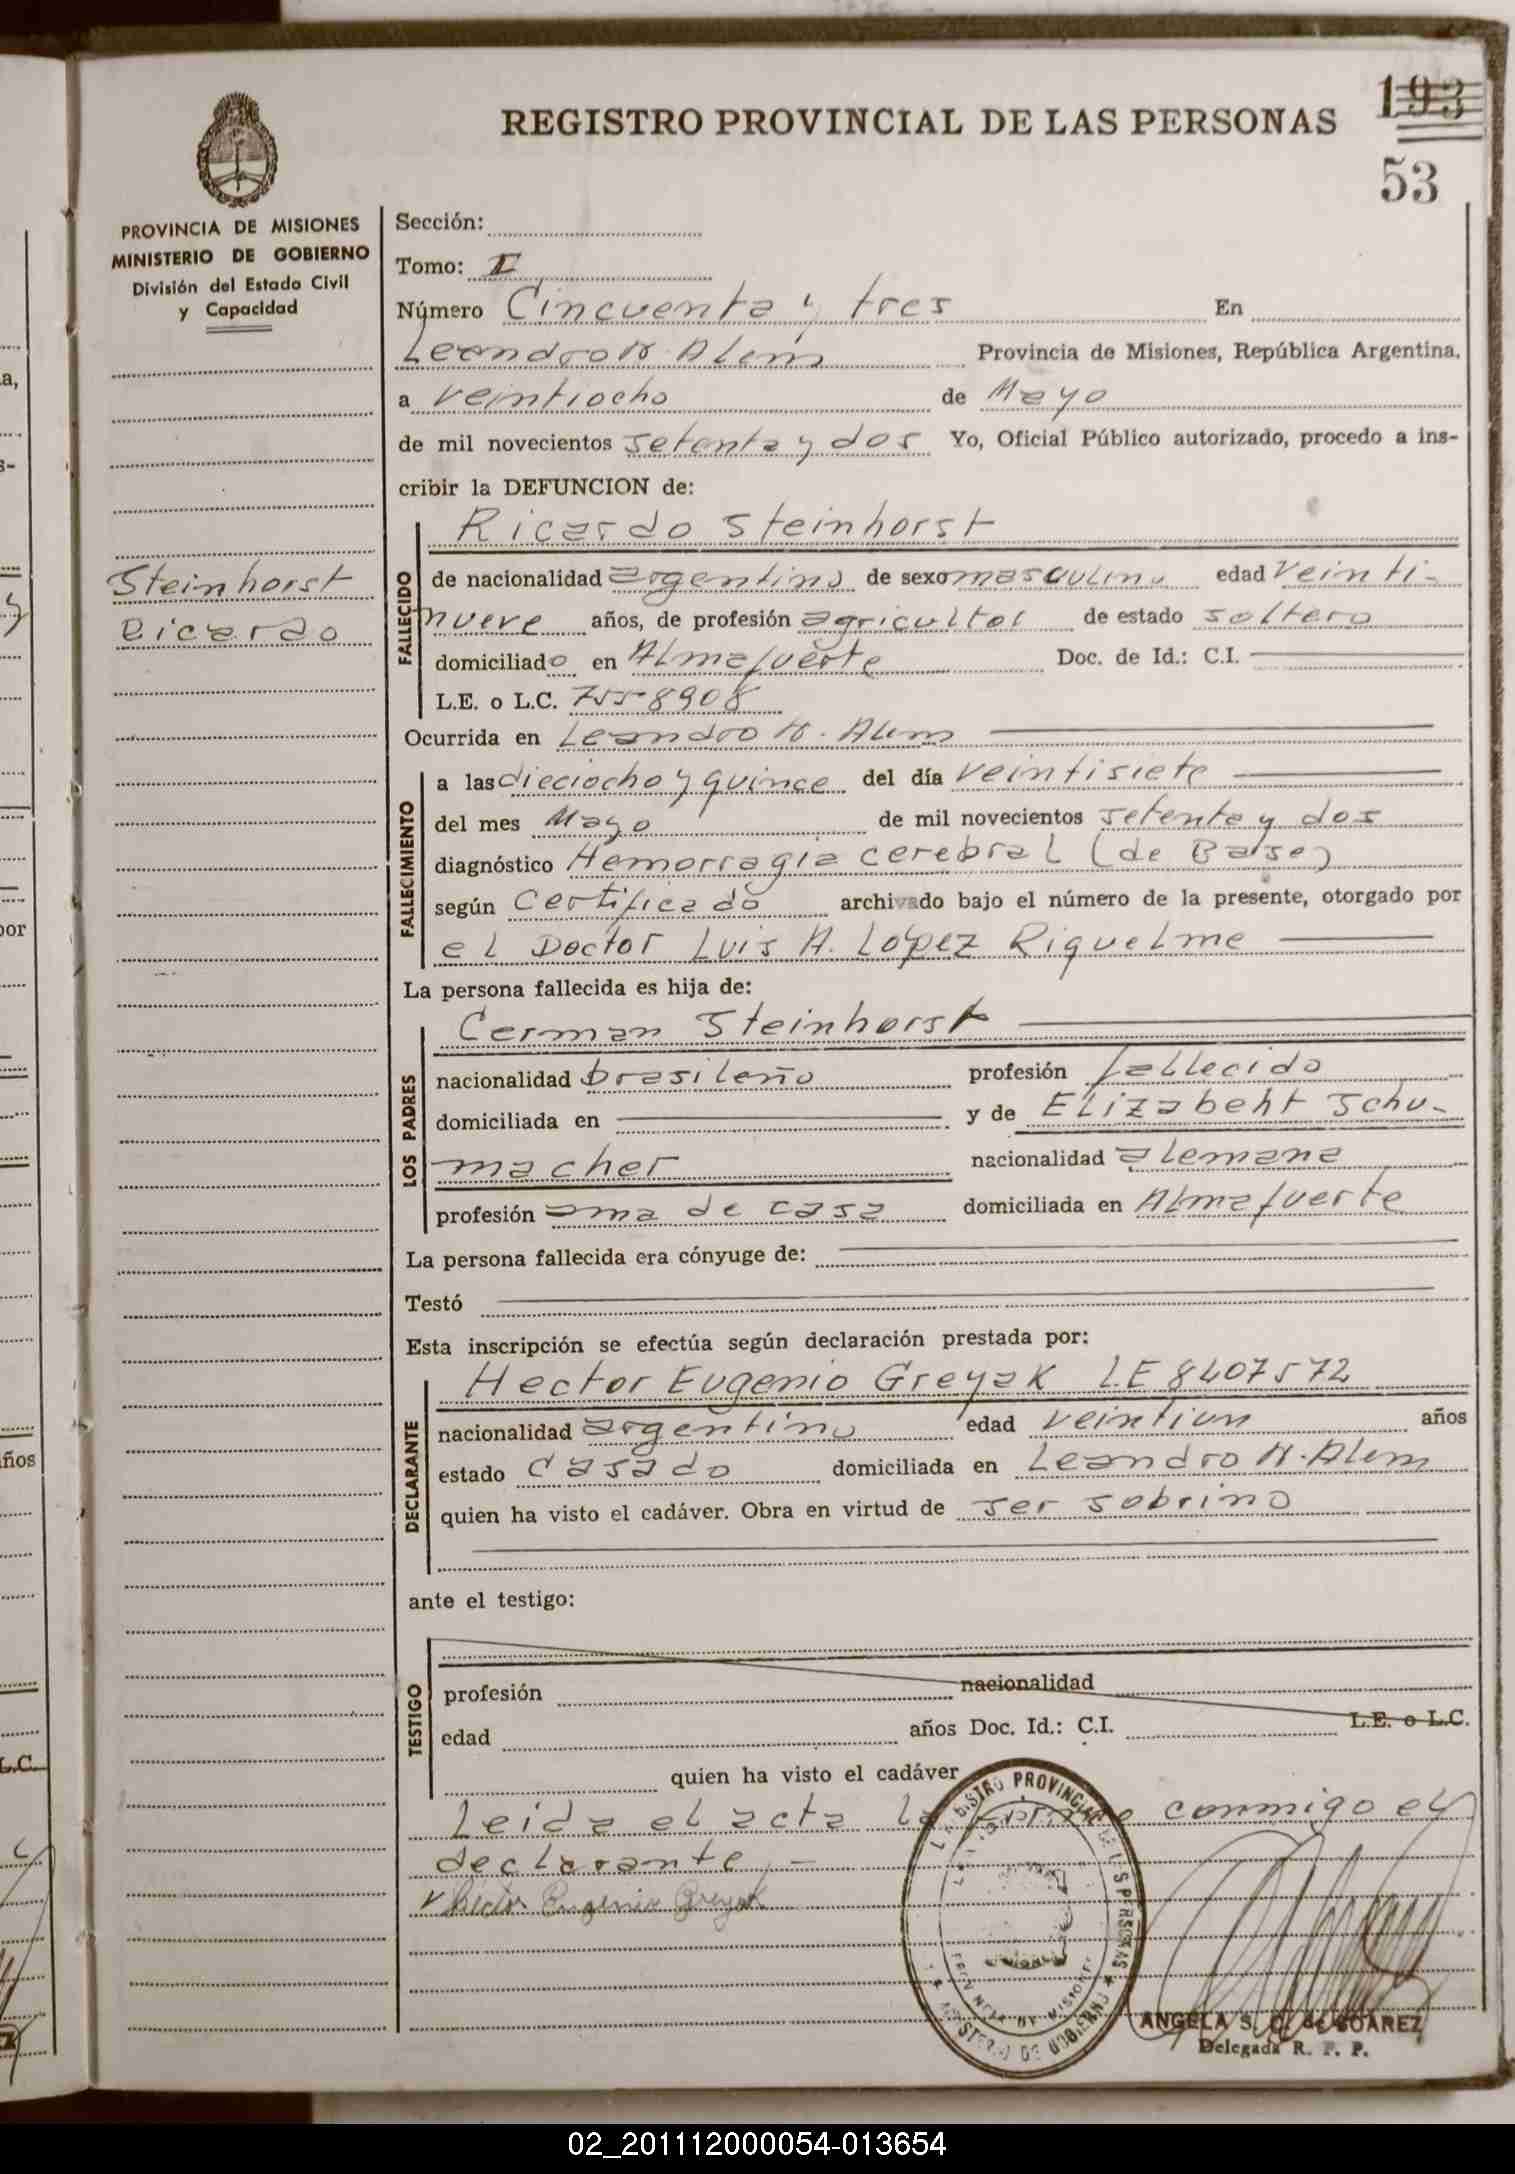 REGISTRO PROVINCIAL DE LAS PERSONAS
193
53
PROVINCIA DE MISIONES
MINISTERIO DE GOBIERNO
División del Estado Civil
y Capacidad
Steinhorst
Ricardo
Sección:
Tomo: I
Número Cincuenta y tres En
Leandro N. Alem Provincia de Misiones, República Argentina,
a veintiocho de Mayo
de mil novecientos setenta y dos Yo, Oficial Público autorizado, procedo a ins-
cribir la DEFUNCION de:
FALLECIDO
Ricardo Steinhorst
de nacionalidad argentino de sexo masculino edad veinti-
nueve años, de profesión agricultor de estado soltero
domiciliado en Almafuerte Doc. de Id.: C.I.
L.E. o L.C. 7558908
Ocurrida en Leandro N. Alem
FALLECIMIENTO
a las dieciocho y quince del día veintisiete
del mes Mayo de mil novecientos setenta y dos
diagnóstico Hemorragia cerebral (de Base)
según Certificado archivado bajo el número de la presente, otorgado por
el Doctor Luis A. López Riquelme
La persona fallecida es hija de:
LOS PADRES
German Steinhorst
nacionalidad brasileño profesión fallecido
domiciliada en y de Elizabeht Schu-
macher nacionalidad alemana
profesión ama de casa domiciliada en Almafuerte
La persona fallecida era cónyuge de:
Testó
Esta inscripción se efectúa según declaración prestada por:
DECLARANTE
Hector Eugenio Greyak L.E 8407572
nacionalidad argentino edad veintiun años
estado casado domiciliada en Leandro N. Alem
quien ha visto el cadáver. Obra en virtud de ser sobrino
ante el testigo:
TESTIGO
profesión nacionalidad
edad años Doc. Id.: C.I. L.E. o L.C.
quien ha visto el cadáver
Leida el acta la firma conmigo el
declarante,-
Héctor Eugenio Greyak
REGISTRO PROVINCIAL DE LAS PERSONAS
MINISTERIO DE GOBIERNO
PROVINCIA DE MISIONES
ANGELA S. C. de SUAREZ
Delegada R. P. P.
a,
s-
por
ños
L.C.
02_201112000054-013654